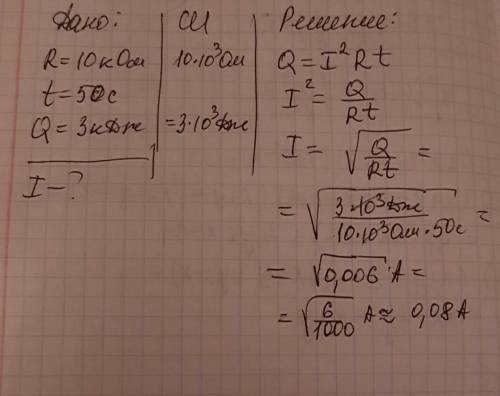 Дано:
R=10кОм
t=50с
Q=3кДж
I-?
СИ
10·10³Ом
=3·10³Дж
Решение:
Q=I²Rt
I²=Q/Rt
I=√(Q/Rt)=
=√(3·10³Дж/10·10³Ом·50с)=
=√0,006 A=
=√(6/1000) A≈0,08A